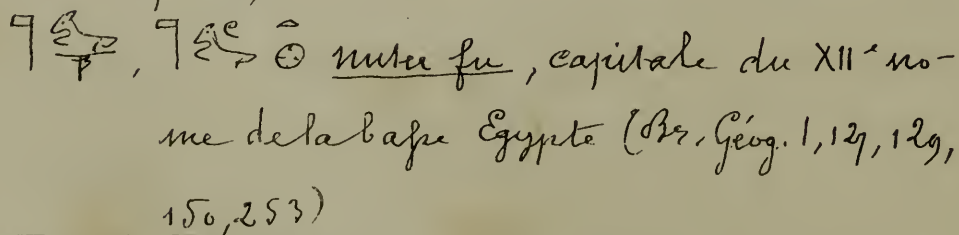 nuter fu, capitale du XIIe no-
me de la basse Egypte (Br. Géog. 1, 127, 129,
150, 253)